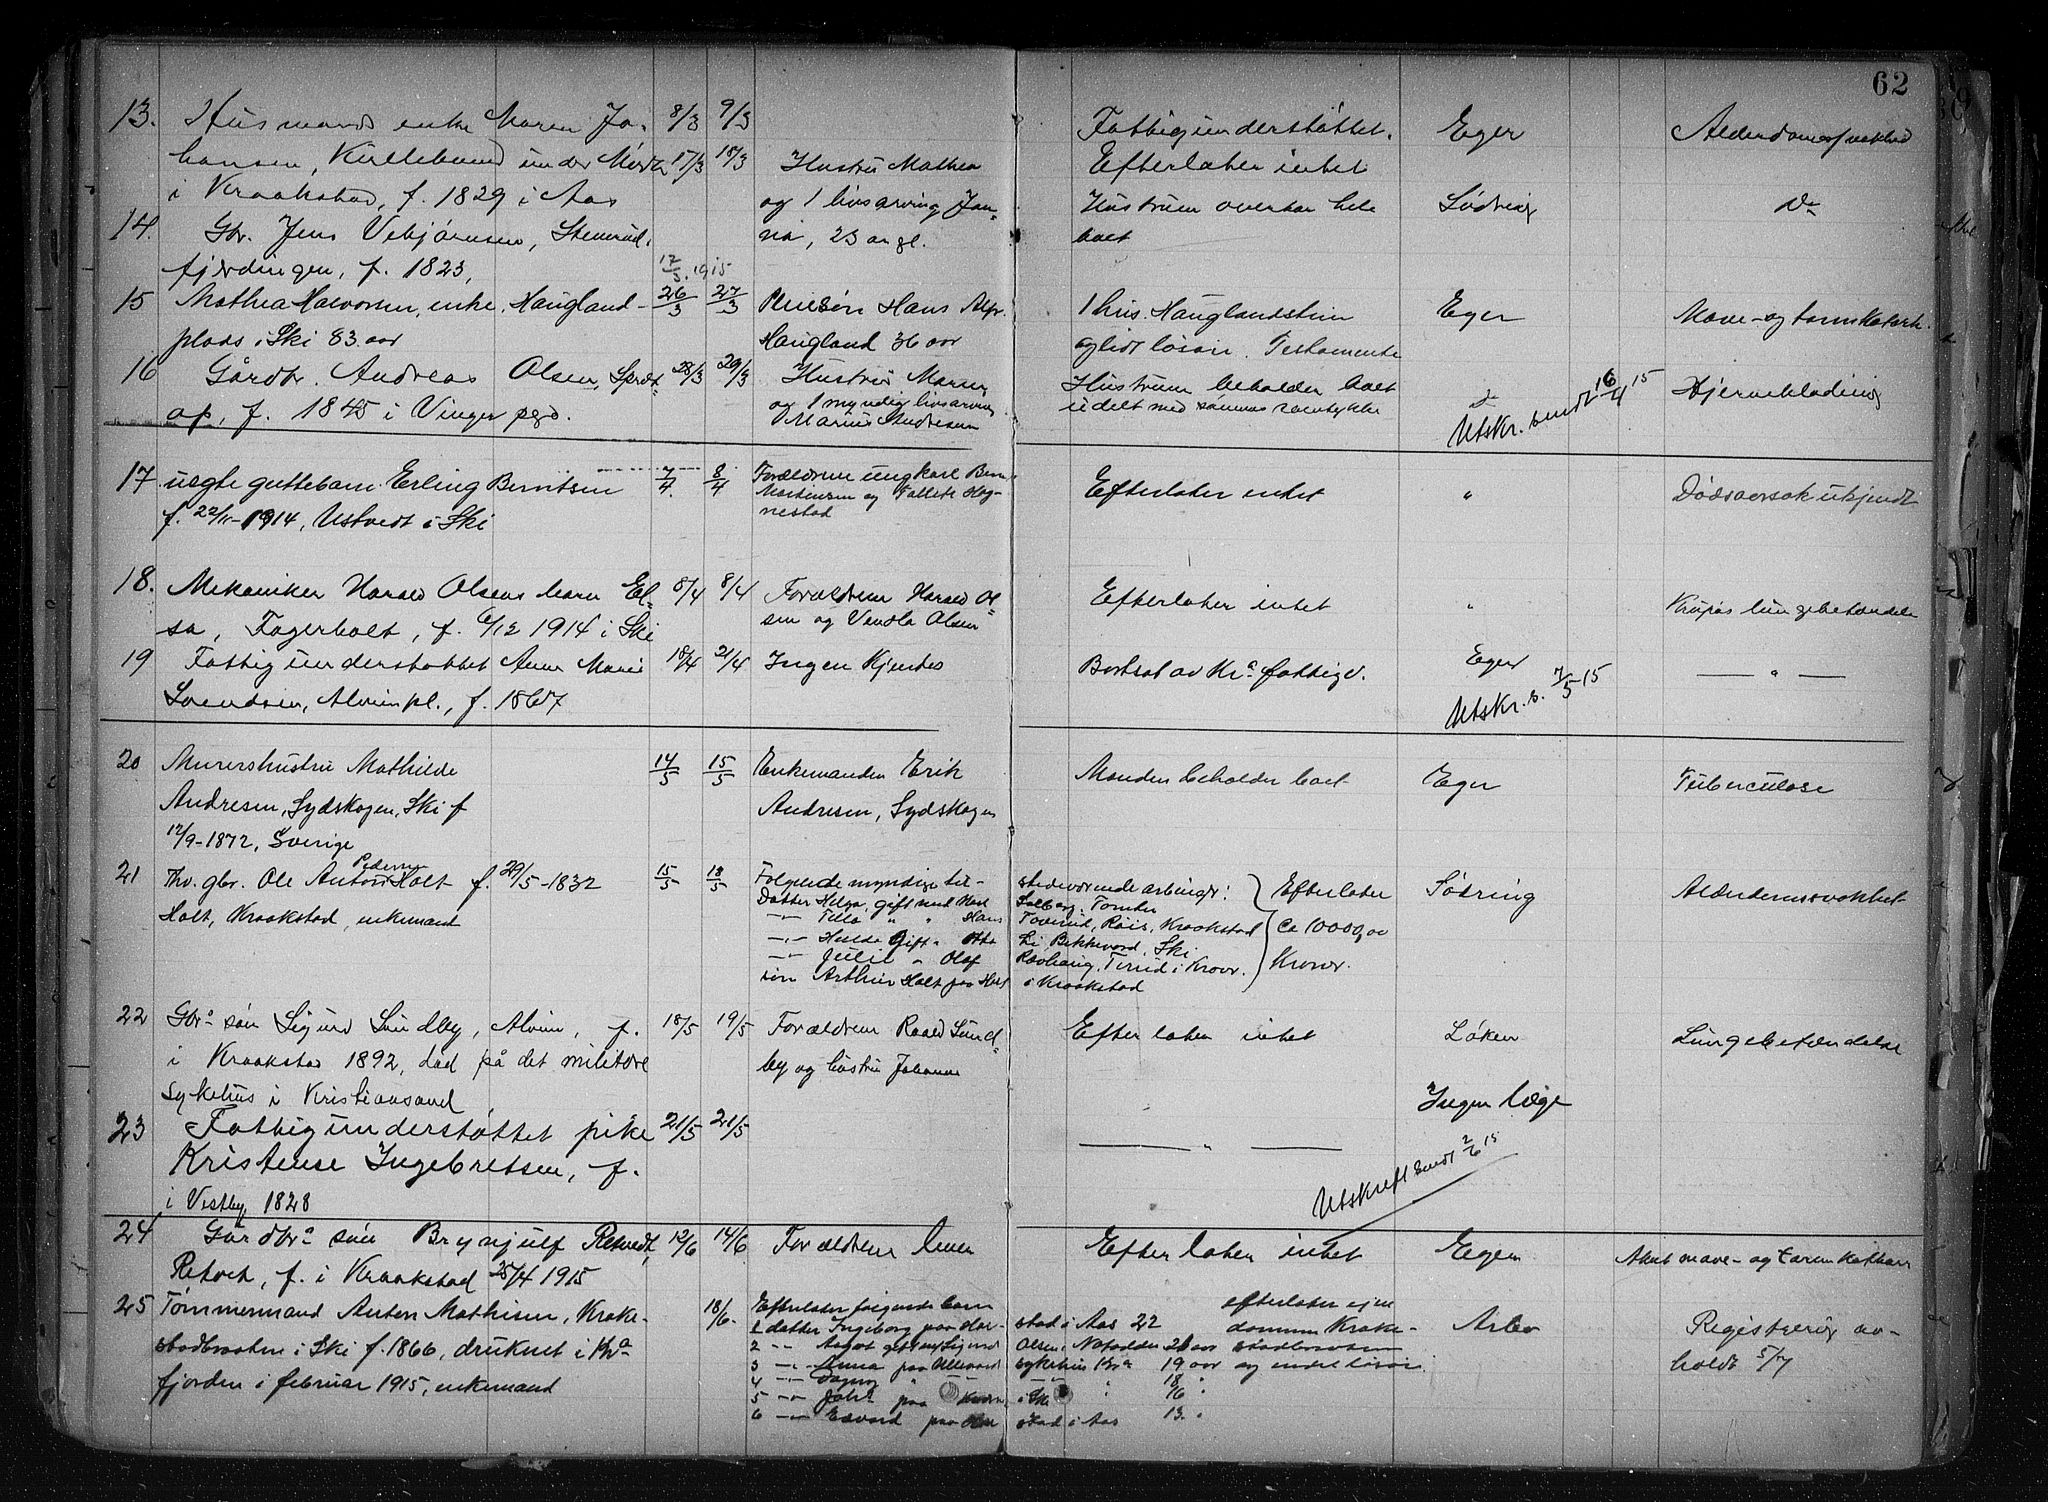 62
13. Husmands enke Maren Jo- 8/3 9/3 Fattigunderstøttet. Eger
hansen, under
i Kraakstad, f. 1829 i Aas Efterlater intet
14. Gbr. Jens Vebjørnsen, Stenrud, 17/3 18/3 Hustru Mathea Hustruen overtar hele Sødring Do
fjerdingen, f. 1823, og 1 livsarving Jan- boet
na, 23 aar gl.
17/3. 1915
15 Mathea Halvorsen, enke, Haugland- 26/3 27/3 Pleiesøn Hans Alfr. 1 hus. Hauglandstuen Eger Mave- og tarmkatarh.
plads i Ski 83 aar Haugland 36 aar og lidt løsøre. Testamente
16 Gårdbr. Andreas Olsen, 28/3 29/3 Hustru Maren Hustruen beholder boet do
f. 1845 i Vinger pgd. og 1 myndig livsarving udelt med sønnens samtykke
Marius Andresen
Utskr. sendt 16/4 15
17. uegte guttebarn Erling Berntsen 7/4. 8/4 Forældrene ungkarl Bernt Efterlater intet " Dødsaarsak ukjendt
f. 22/11-1914, Ustvedt i Ski Martinsen og
nestad
18. Mekaniker Harald Olsens barn El- 8/4 8/4 Forældrene Harald Ol- Efterlater intet " Krupøs lungebetændelse
sa, Fagerholt, f. 6/12 1914 i Ski sen og Vendla Olsen
19 Fattigunderstøttet Anne Marie 18/4 21/4 Ingen Kjendes Bortsat av Kra fattigv. Eger — " —
Svendsen, Alvimpl., f. 1867
Utskr. s. 7/5 15
20 Murershustru Mathilde 14/5 15/5 Enkemanden Erik Manden beholder boet Eger Tuberculose
Andresen, Sydskogen, Ski f Andresen, Sydskogen
12/9-1872, Sverige
21 Thv. gbr. Ole Anton Pedersen Holt f. 29/5-1832 15/5 18/5 Følgende myndige til- stedeværende arvinger: Efterlater Sødring Alderdomssvakhet
Holt, Kraakstad, enkemand Datter Helga, gift med Tomter ca 10000,00
—"— " " Hans Røis, Kraakstad Kroner.
—"— Hulda Gift " Otto Li, Ski
—"— Julie " Olaf i Kroer.
søn Arthur Holt paa Holt i Kraakstad
22 Gbr. søn Sigurd Sundby, Alvim, f. 18/5 19/5 Forældrene Roald Sund- Efterlater intet Løken Lungebetændelse
i Kraakstad 1892, død på det militære by og hustru Johanne
sykehus i Kristiansand
23 Fattigunderstøttet pike 21/5 21/5 — " — Ingen læge
Kristense Ingebretsen, f.
i Vestby 1828
Utskrift sendt 2/6 15
24 Gårdbr. søn Brynjulf Retvedt, 12/6 14/6 Forældrene lever Efterlater intet Eger Akut mave- og tarmkatharr
Retvet, f. i Kraakstad 25/4 1915
25 Tømmermand Anton Mathisen, Krake- 18/6. Efterlater følgende barn efterlater eien Arbo Registrering av-
stadbraaten i Ski f. 1866, druknet i Kra 1 datter Ingeborg paa Hol- stad i Aas 22 dommen Krake- holdt 5/7
fjorden i februar 1915, enkemand 2 —"— Aagot gift m/ Sigurd Olsen, Notodden 21 aar stadbraaten
3 —"— Anna paa Ullevaal sykehus Kra 19 aar og endel løsøre
4 —"— Dagny " —"— —"— 18 "
5 —"— paa i Ski " 16 "
6 —"— Edvard paa Hol stad i Aas 13 "